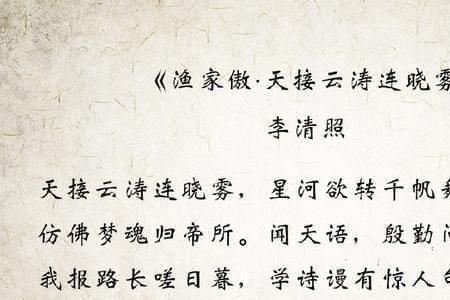 《渔家傲·天接云涛连晓雾
李清照
天接云涛连晓雾，星河欲转千帆
仿佛梦魂归帝所。闻天语，殷勤
我报路长嗟日暮，学诗谩有惊人